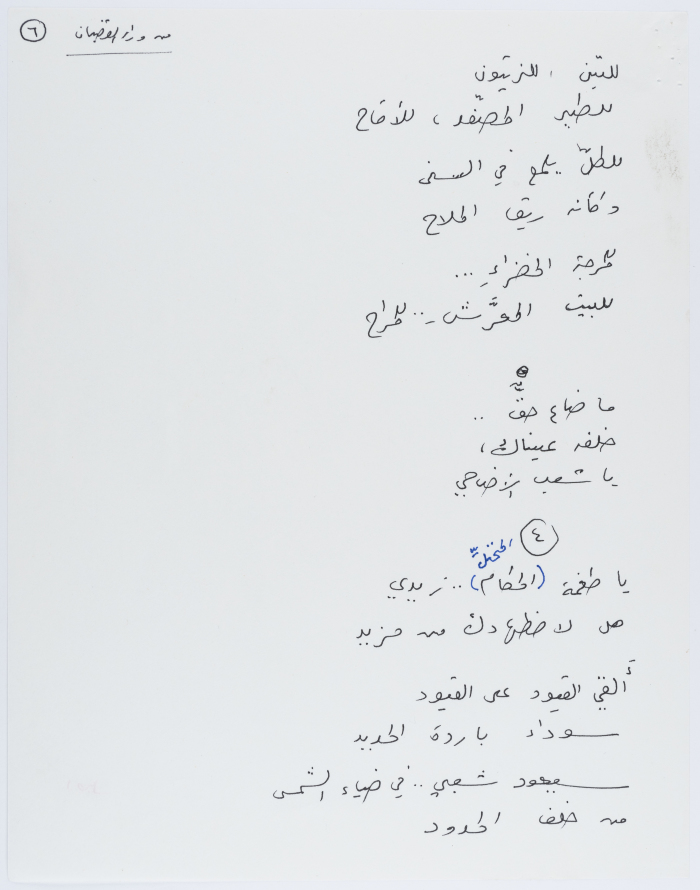 ٦
من وراء القضبان
للتّين ، للزيتون
للطير المصفّد ، للأقاح
للطلّ يلمع في السنى
وكأنه ريق الملاح
للمرجة الخضراءِ ...
للبيت المعرَّش .. للمراح
ما ضاع حقٌّ ..
خلفه عيناك ،
يا شعب الأضاحي
٤
المحتلّ
يا طغمة (الحكام) .. زيدي
هل لاضطهادك من مزيد
ألقي القيود على القيود
سوداء باردة الحديد
سيعود شعبي .. في ضياء الشمس
من خلف الحدود